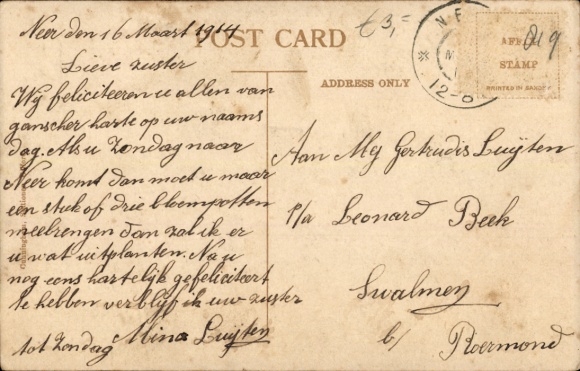 Neer den 16 Maart 1914
Lieve zuster
Wij feliciteeren u allen van
ganscher harte op uw naams
dag. Als u Zondag naar
Neer komt dan moet u maar
een stuk of drie bloempotten
meebrengen dan zal ik er
u wat uitplanten. Na u
nog eens hartelijk gefeliciteert
te hebben verblijf ik uw zuster
tot Zondag Mina Luijten
POST CARD
ADDRESS ONLY
€3,-
AFFIX
STAMP
PRINTED IN SAXONY
Aan Mej Gertrudis Luijten
p/a Leonard Beek
Swalmen
b/ Roermond